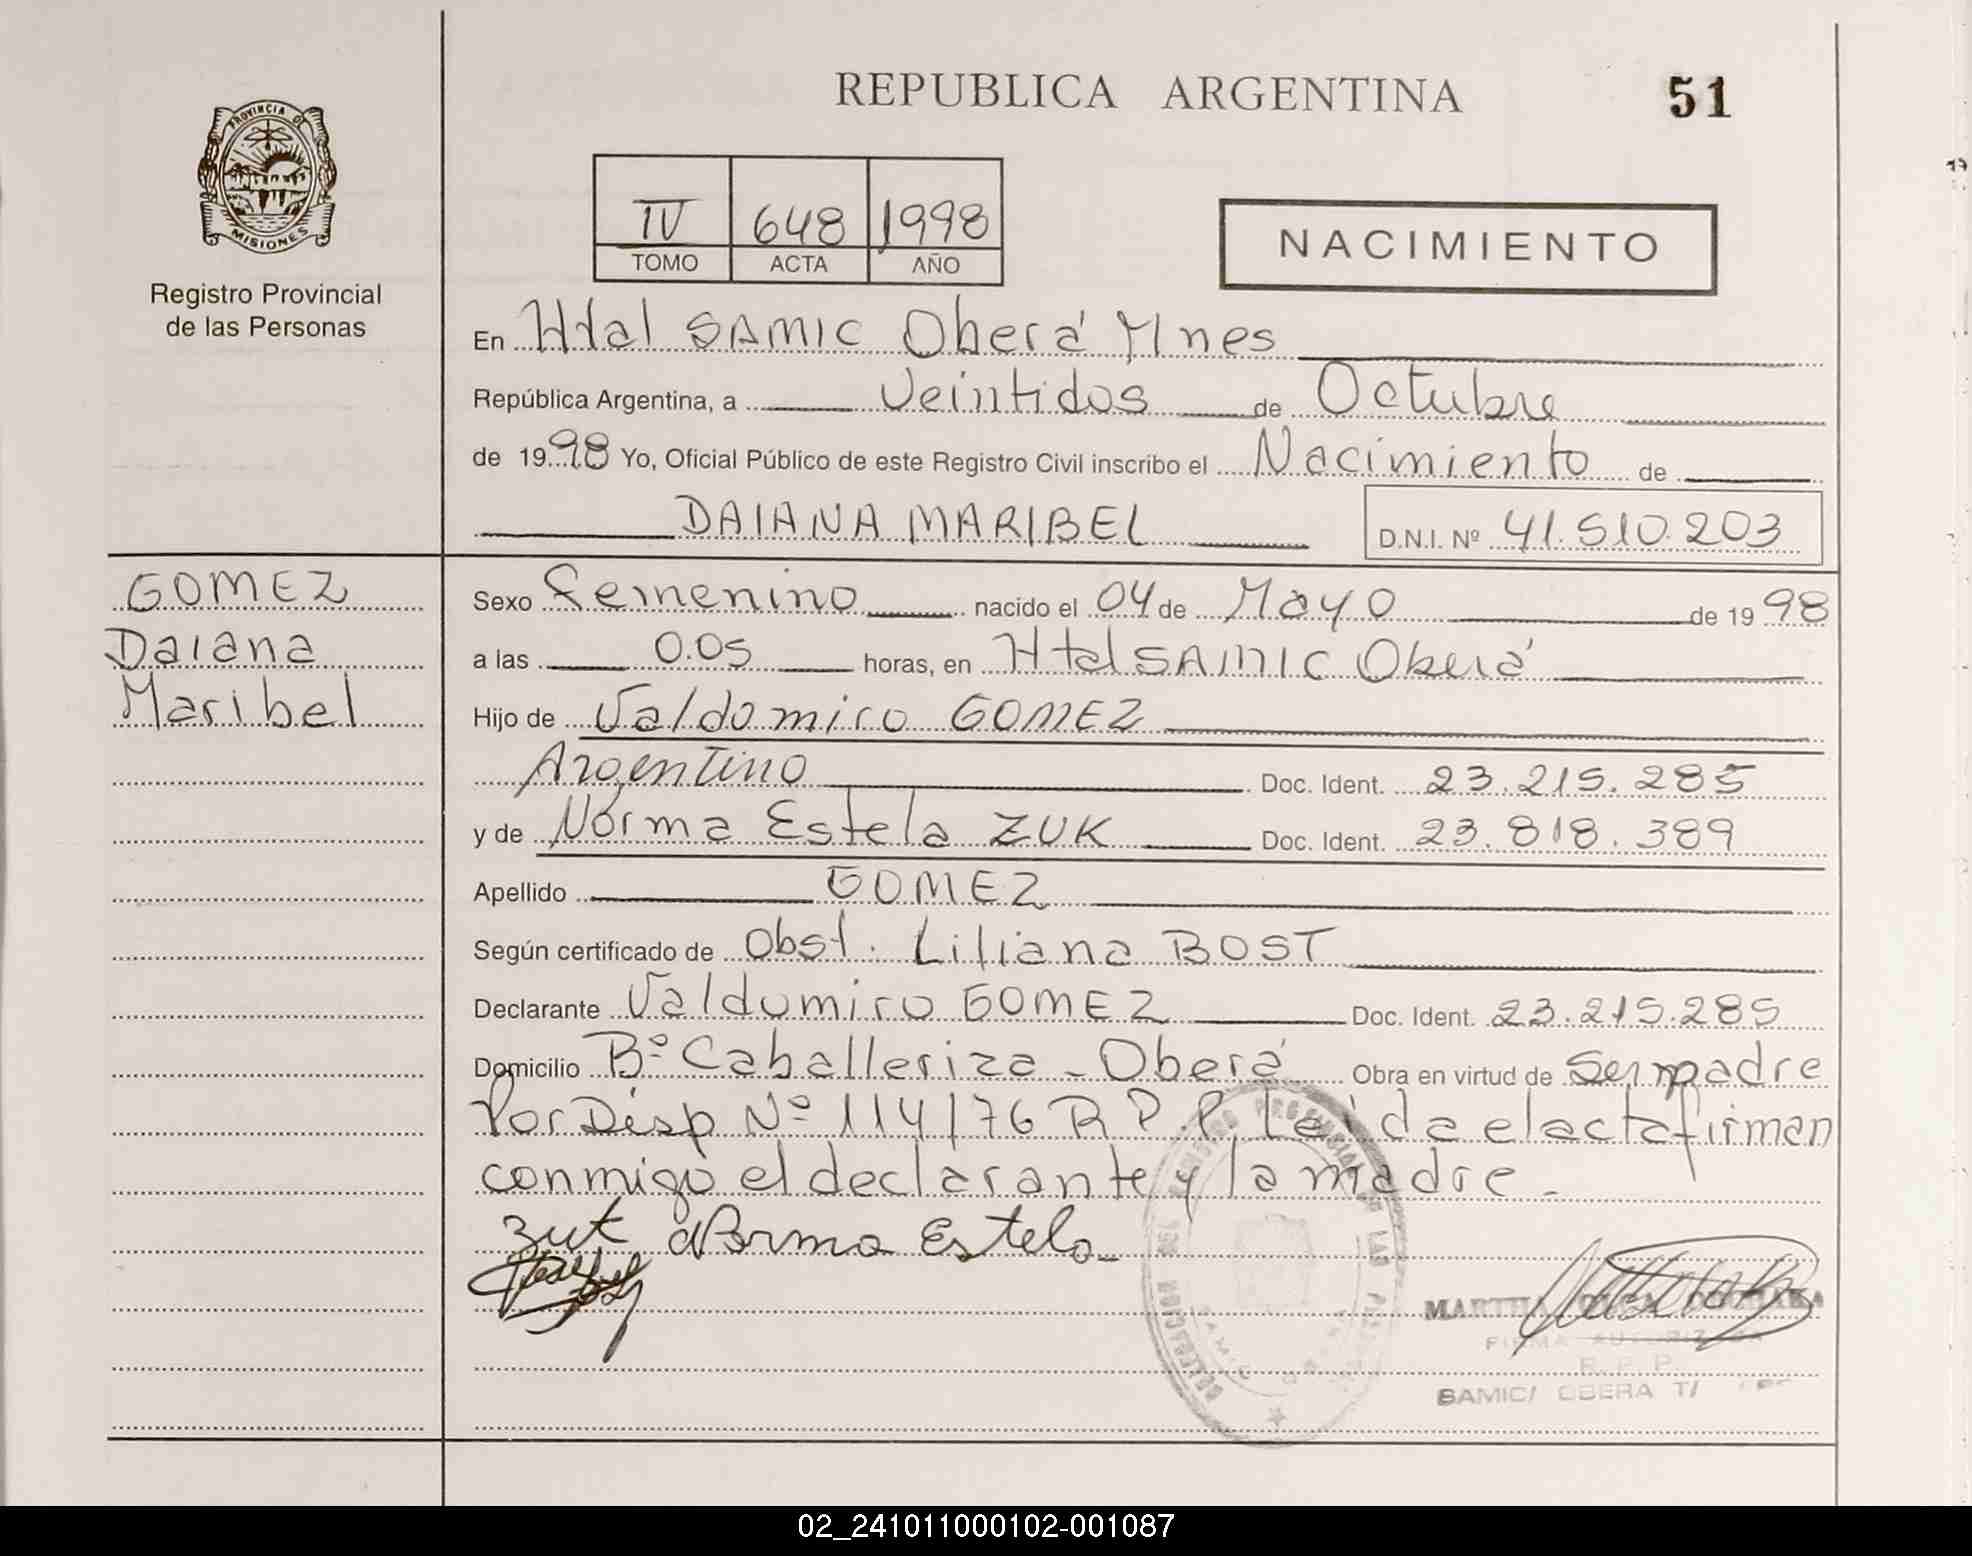 REPUBLICA ARGENTINA
51
PROVINCIA DE
MISIONES
Registro Provincial
de las Personas
IV 648 1998
TOMO ACTA AÑO
NACIMIENTO
En Htal SAMIC Oberá Mnes
República Argentina, a Veintidos de Octubre
de 1998 Yo, Oficial Público de este Registro Civil inscribo el Nacimiento de
DAIANA MARIBEL D.N.I. Nº 41.510.203
GOMEZ
Daiana
Maribel
Sexo Femenino nacido el 04 de Mayo de 1998
a las 0.05 horas, en Htal SAMIC Oberá
Hijo de Valdomiro GOMEZ
Argentino Doc. Ident. 23.215.285
y de Norma Estela ZUK Doc. Ident. 23.818.389
Apellido GOMEZ
Según certificado de Obst. Liliana BOST
Declarante Valdomiro GOMEZ Doc. Ident. 23.215.285
Domicilio Bº Caballeriza - Oberá Obra en virtud de Ser padre
Por Disp Nº 114/76 R.P.P. Leida el acta firman
conmigo el declarante y la madre.
Zuk Norma Estela
MARTHA
FIRMA AUTORIZADA
R. P. P.
SAMIC/ OBERA
02_241011000102-001087